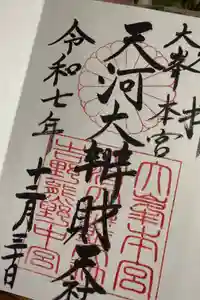 奉拝
大峯本宮
天河大辨財天社
令和七年
十二月三十日
大峯本宮